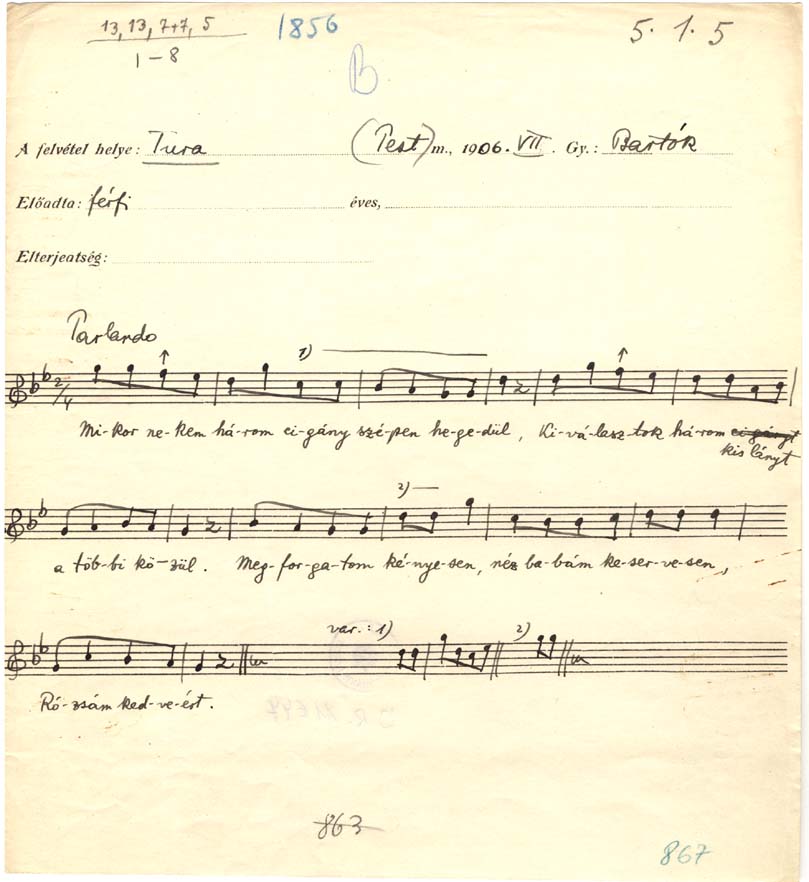 13, 13, 7+7, 5 1856 5. 1. 5
1-8
B
A felvétel helye: Tura (Pest) m., 1906. VII. Gy.: Bartók
Előadta: férfi éves,
Elterjeatség:
Parlando
1)
2/4
Mi-kor ne-kem há-rom ci-gány szé-pen he-ge-dül, Ki-vá-lasz-tok há-rom cigányt
kis lányt
2)
a töb-bi kö-zül. Meg-for-ga-tom ké-nye-sen, néz ba-bám ke-ser-ve-sen,
var.: 1) 2)
Ró-zsám ked-ve-ért.
863
867